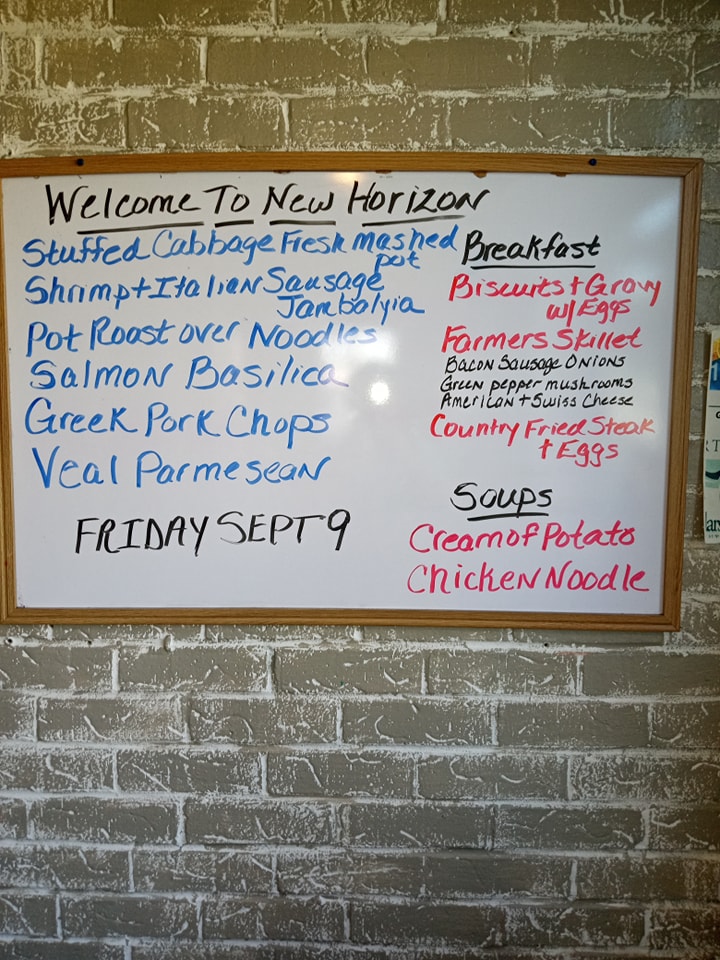 Welcome To New Horizon
Stuffed Cabbage Fresh mashed
pot
Shrimp + Italian Sausage
Jambolyia
Pot Roast over Noodles
Salmon Basilica
Greek Pork Chops
Veal Parmesean
FRIDAY SEPT 9
Breakfast
Biscuits + Gravy
w/ Eggs
Farmers Skillet
Bacon Sausage Onions
Green pepper mushrooms
American + Swiss Cheese
Country Fried Steak
+ Eggs
Soups
Cream of Potato
Chicken Noodle